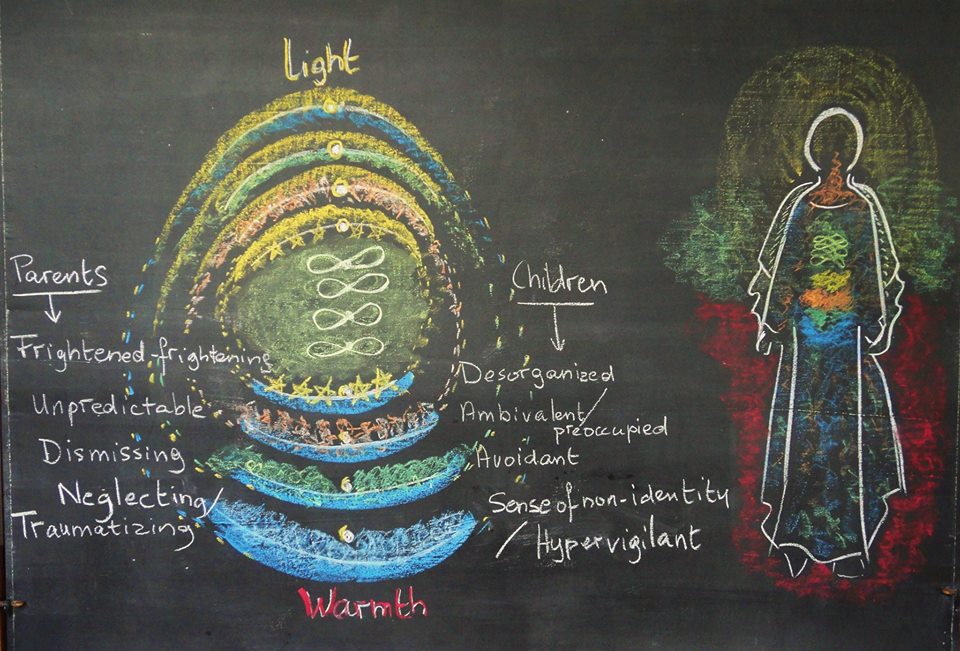 Light
Parents
Frightened-frightening
Unpredictable
Dismissing
Neglecting/
Traumatizing
Children
Desorganized
Ambivalent/
preoccupied
Avoidant
Sense of non-identity
/ Hypervigilant
Warmth